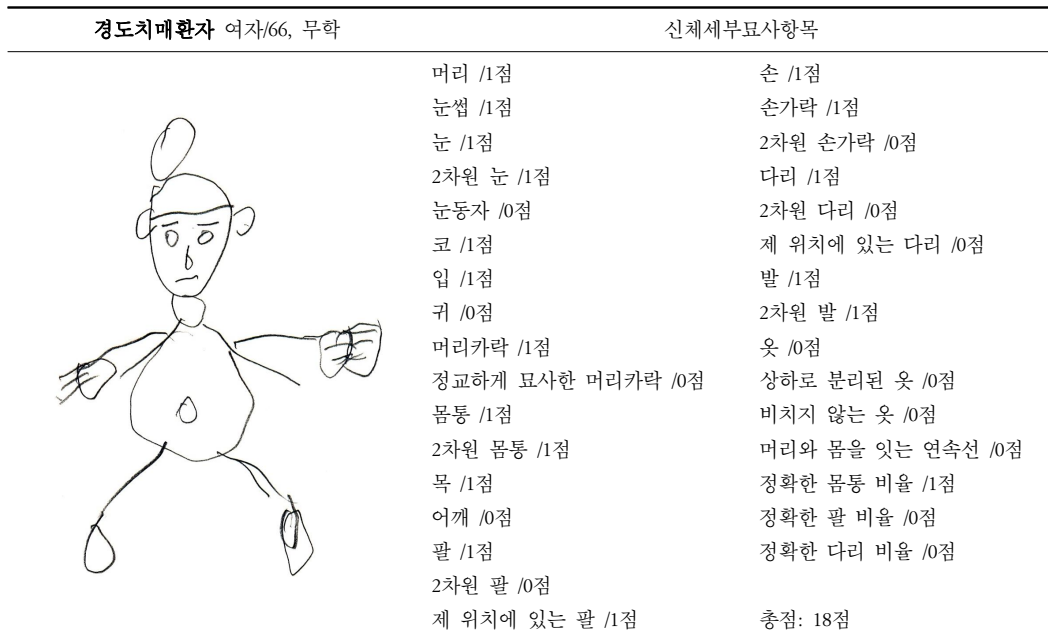 경도치매환자 여자/66, 무학
신체세부묘사항목
머리 /1점
눈썹 /1점
눈 /1점
2차원 눈 /1점
눈동자 /0점
코 /1점
입 /1점
귀 /0점
머리카락 /1점
정교하게 묘사한 머리카락 /0점
몸통 /1점
2차원 몸통 /1점
목 /1점
어깨 /0점
팔 /1점
2차원 팔 /0점
제 위치에 있는 팔 /1점
손 /1점
손가락 /1점
2차원 손가락 /0점
다리 /1점
2차원 다리 /0점
제 위치에 있는 다리 /0점
발 /1점
2차원 발 /1점
옷 /0점
상하로 분리된 옷 /0점
비치지 않는 옷 /0점
머리와 몸을 잇는 연속선 /0점
정확한 몸통 비율 /1점
정확한 팔 비율 /0점
정확한 다리 비율 /0점
총점: 18점